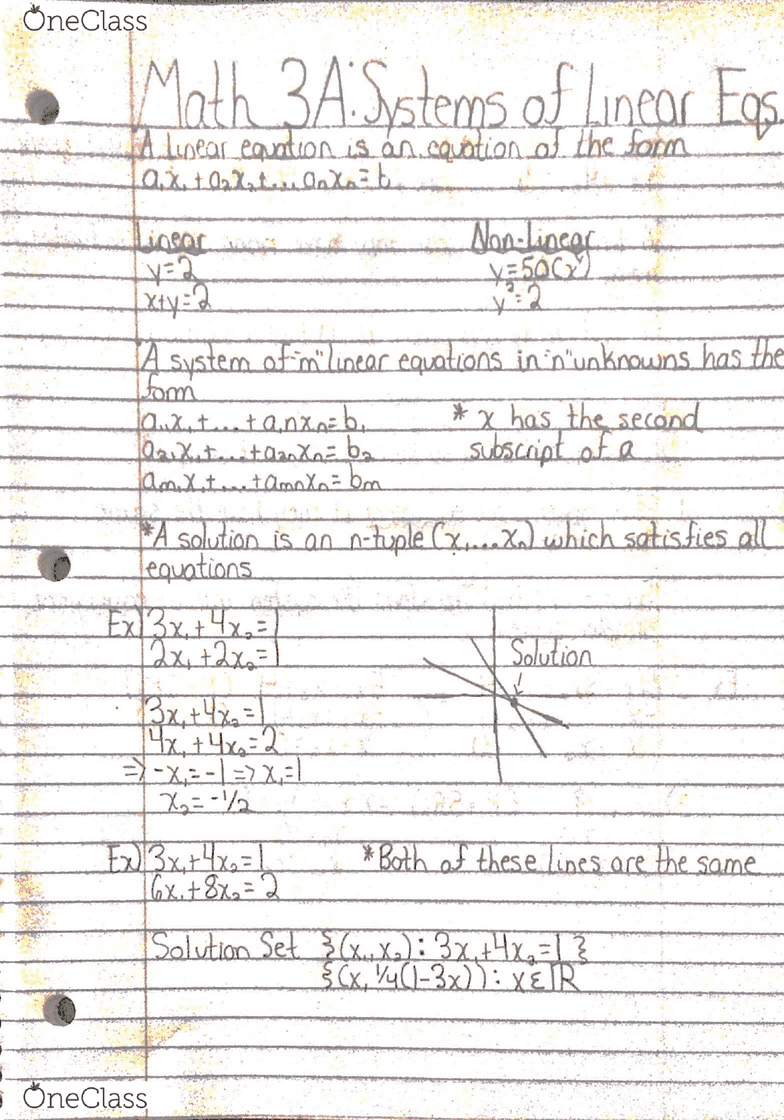 OneClass
Math 3A: Systems of Linear Eqs.
A linear equation is an equation of the form
a₁x₁ + a₂x₂ + ... aₙxₙ = b
Linear Non-Linear
y=2 y=50(x
x+y=2 y²=2
A system of "m" linear equations in "n" unknowns has the
form
a₁₁x₁ + ... + a₁nxₙ = b₁ * x has the second
a₂₁x₁ + ... + a₂ₙxₙ = b₂ subscript of a
am₁x₁ + ... + amnxₙ = bm
*A solution is an n-tuple (x₁...xₙ) which satisfies all
equations
Ex) 3x₁ + 4x₂ = 1
2x₁ + 2x₂ = 1 Solution
3x₁ + 4x₂ = 1
4x₁ + 4x₂ = 2
=> -x₁ = -1 => x₁ = 1
x₂ = -1/2
Ex) 3x₁ + 4x₂ = 1 *Both of these lines are the same
6x₁ + 8x₂ = 2
Solution Set {(x₁, x₂): 3x₁ + 4x₂ = 1}
{(x, 1/4(1-3x)): x ∈ ℝ
OneClass